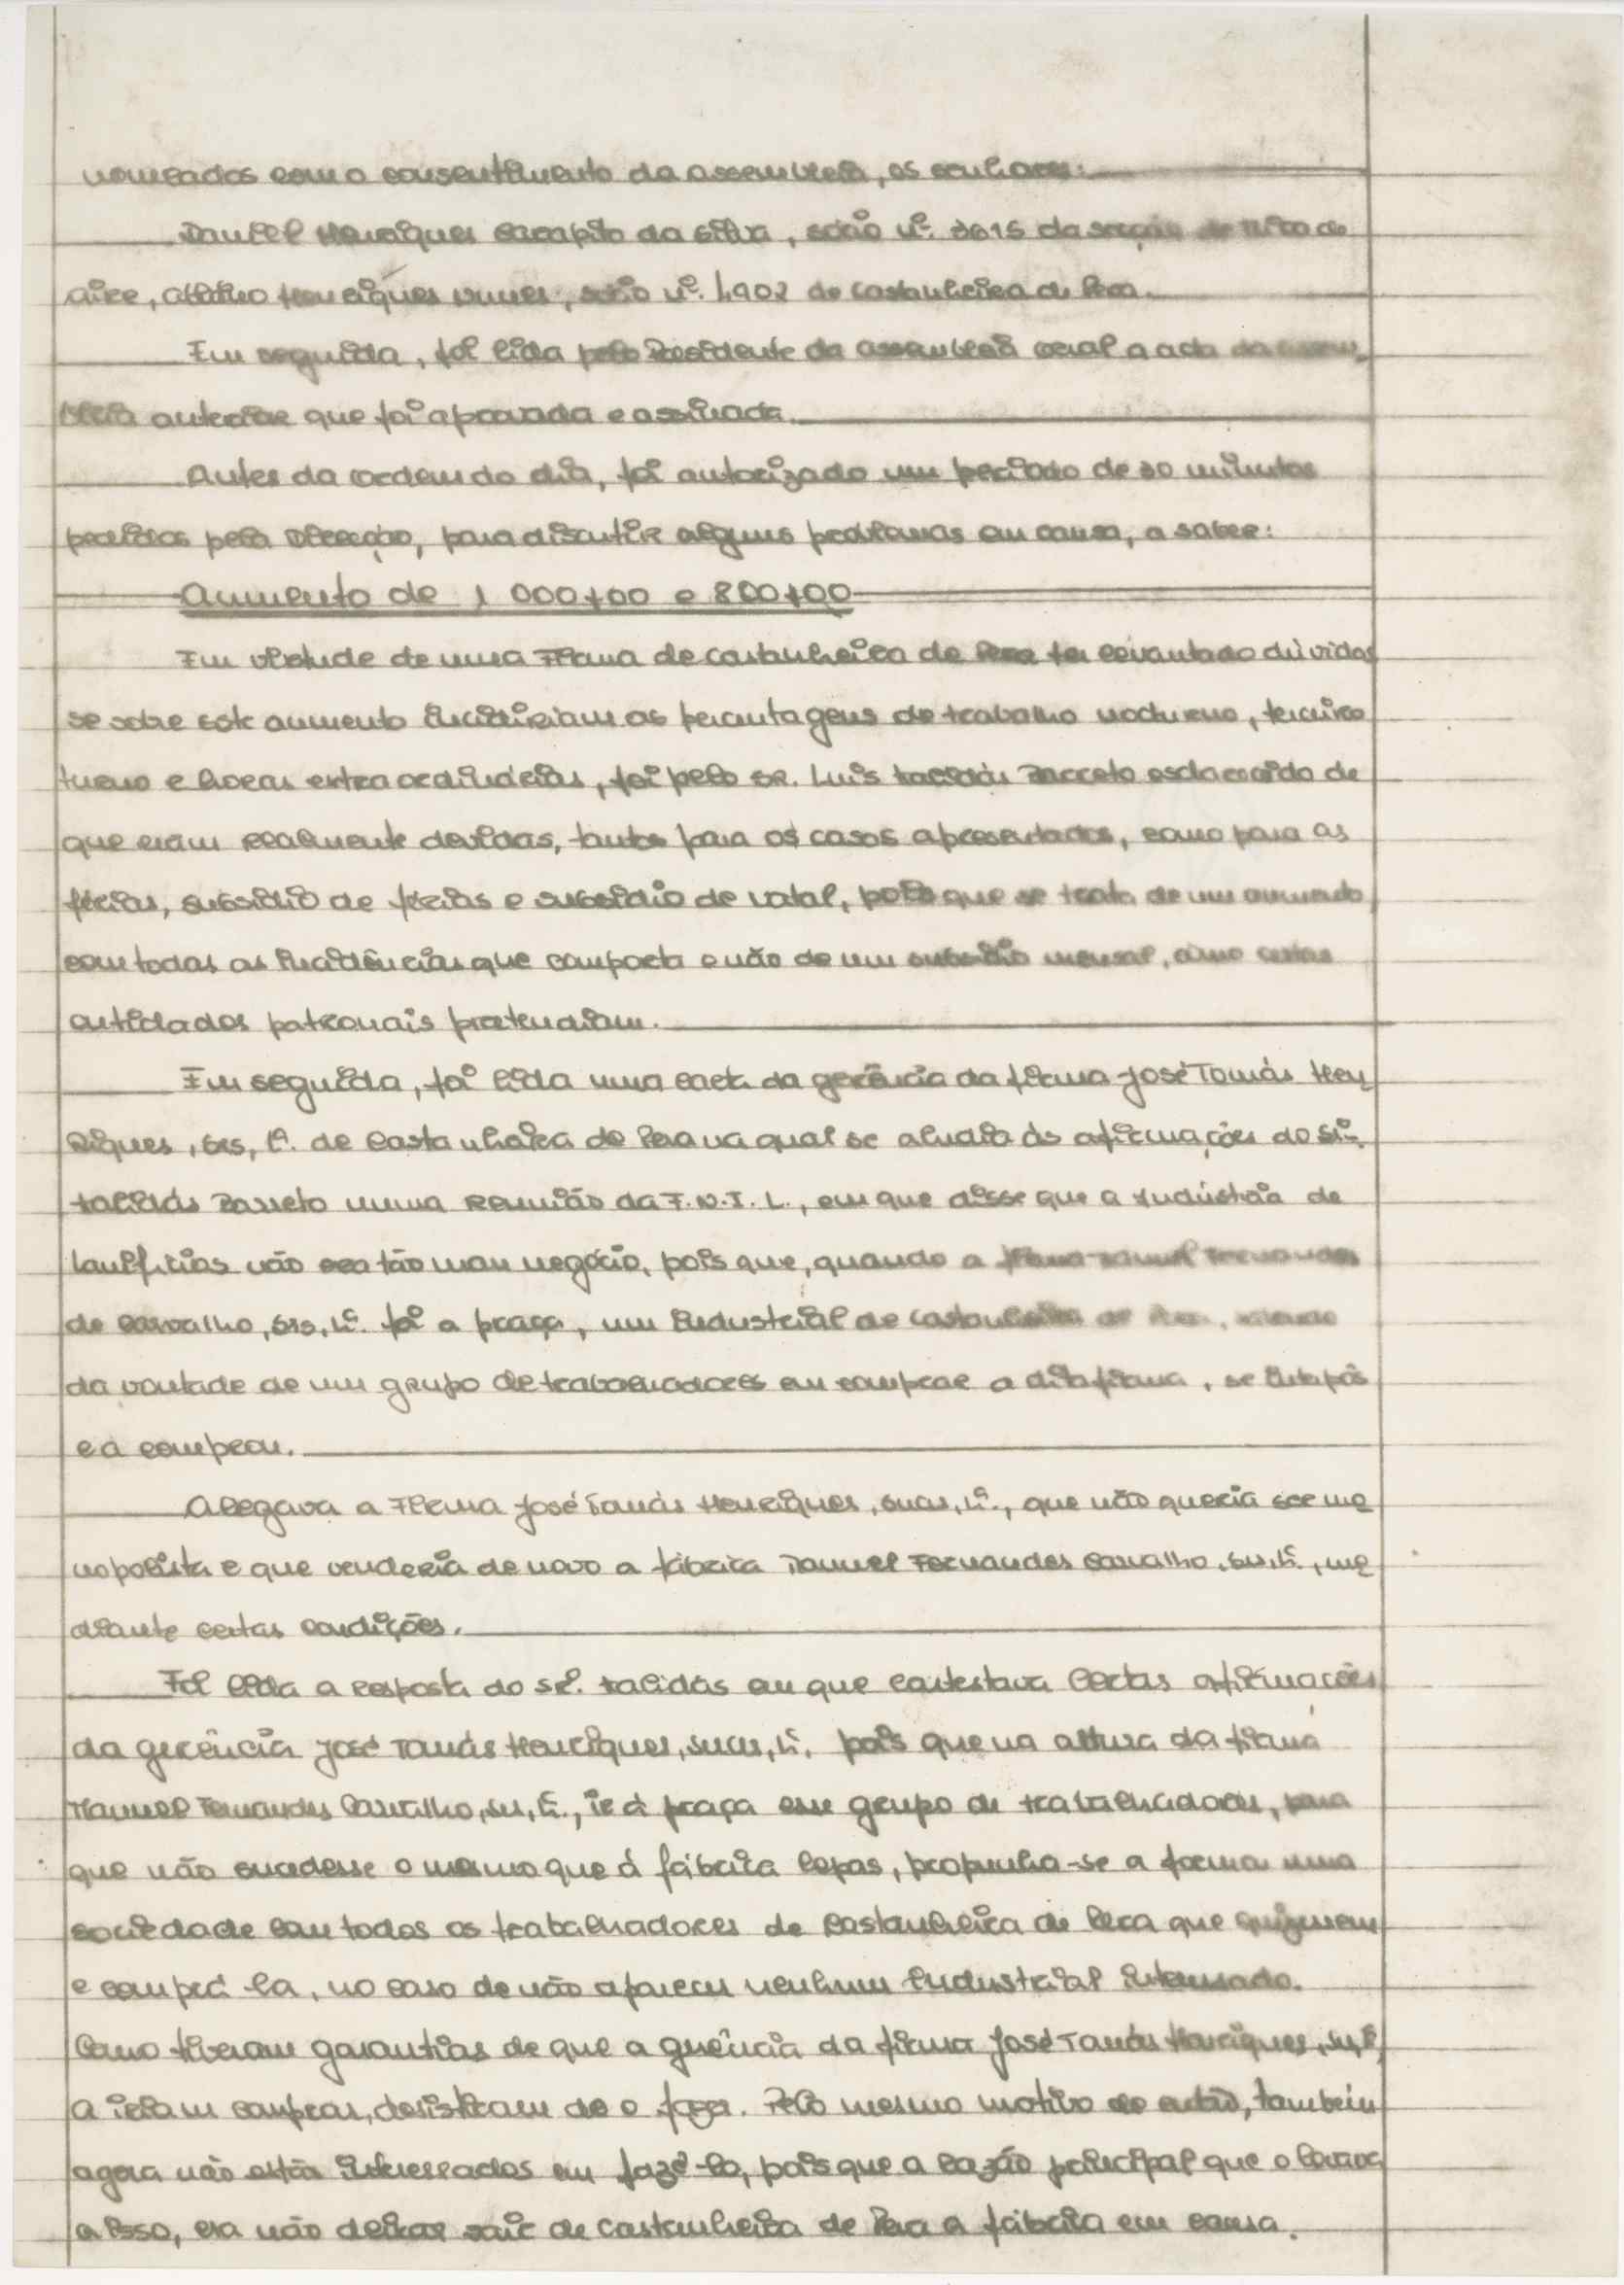 nomeados com o consentimento da assembleia, os senhores:
Daniel Henriques Carapito da Silva, sócio nº. 3615 da secção de
Aire, Albino Henriques Nunes, sócio nº. 4902 de Castanheira de Pera.
Em seguida, foi lida pelo Presidente da Assembleia Geral a acta da assem
bleia anterior que foi aprovada e assinada.
Antes da ordem do dia, foi autorizado um período de 30 minutos
pedidos pela Direcção, para discutir alguns problemas em causa, a saber:
Aumento de 1 000$00 e 800$00
Em virtude de uma Firma de Castanheira de Pera ter levantado dúvidas
se sobre este aumento incidiriam as percentagens de trabalho nocturno, terceiro
turno e horas extraordinárias, foi pelo Sr. Luis Kalidás Barreto esclarecido de
que eram realmente devidas, tanto para os casos apresentados, como para as
férias, subsídio de férias e subsídio de Natal, pois que se trata de um aumento
com todas as incidências que comporta e não de um subsídio mensal, como certas
entidades patronais pretendiam.
Em seguida, foi lida uma carta da gerência da firma José Tomás Hen
riques, Srs, Lª. de Castanheira de Pera na qual se aludia às afirmações do Sr.
Kalidás Barreto numa reunião da F.N.I.L., em que disse que a Indústria de
Lanifícios não era tão mau negócio, pois que, quando a firma Manuel Fernandes
de Carvalho, Srs, Lª. foi a praça, um industrial de Castanheira de Pera, sabendo
da vontade de um grupo de trabalhadores em comprar a dita firma, se antepôs
e a comprou.
Alegava a Firma José Tomás Henriques, Sucrs, Lª., que não queria ser mo
nopolista e que venderia de novo a fábrica Manuel Fernandes Carvalho, Srs, Lª., me
diante certas condições.
Foi lida a resposta do Sr. Kalidás em que contestava certas afirmações
da gerência José Tomás Henriques, Sucrs, Lª, pois que na altura da firma
Manuel Fernandes Carvalho, Srs, Lª., ir à praça esse grupo de trabalhadores, para
que não sucedesse o mesmo que à fábrica Cepas, propunha-se a formar uma
sociedade com todos os trabalhadores de Castanheira de Pera que quizessem
e comprá-la, no caso de não aparecer nenhum industrial interessado.
Como tiveram garantias de que a gerência da firma José Tomás Henriques, Srs, Lª,
a iriam comprar, desistiram de o fazer. Pelo mesmo motivo de então, também
agora não estão interessados em fazê-lo, pois que a razão principal que o levava
a isso, era não deixar sair de Castanheira de Pera a fábrica em causa.